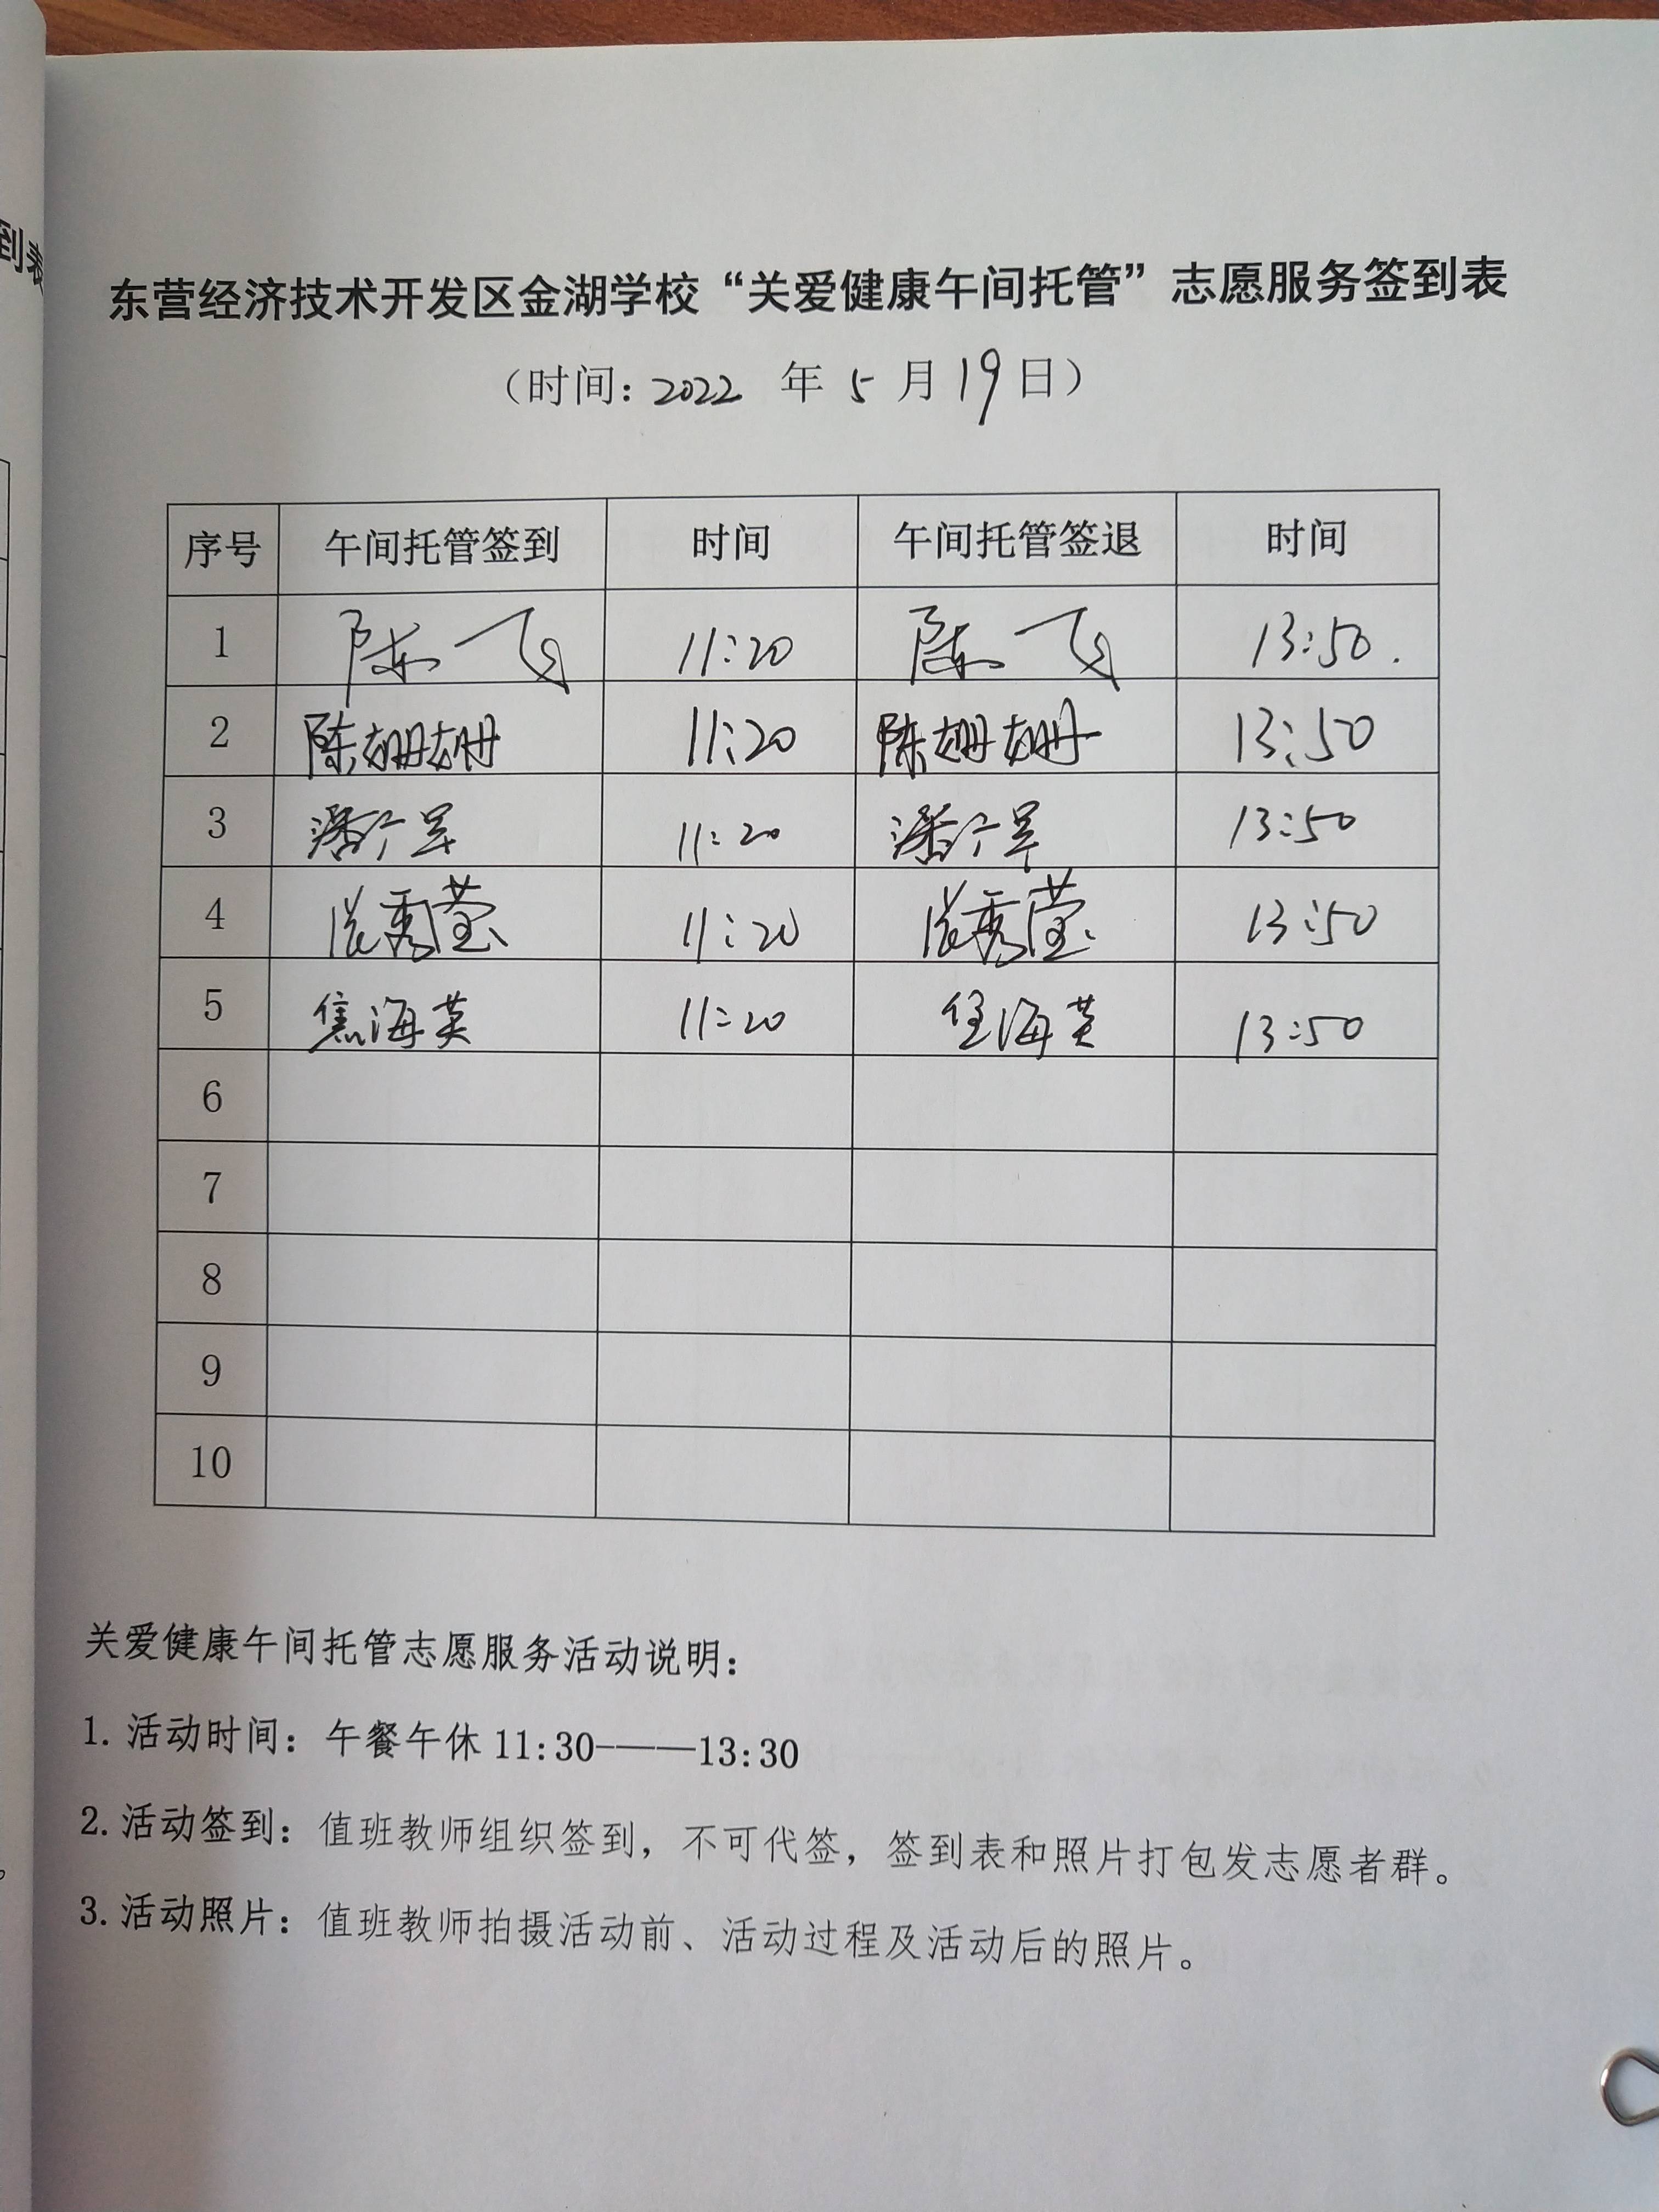 到表
东营经济技术开发区金湖学校“关爱健康午间托管”志愿服务签到表
（时间：2022 年 5 月 19 日）
序号 午间托管签到 时间 午间托管签退 时间
1 陈一飞 11:20 陈一飞 13:50.
2 陈姗姗 11:20 陈姗姗 13:50
3 潘广军 11:20 潘广军 13:50
4 秀莹 11:20 秀莹 13:50
5 焦海英 11:20 焦海英 13:50
6
7
8
9
10
关爱健康午间托管志愿服务活动说明：
1. 活动时间：午餐午休 11:30-——13:30
2. 活动签到：值班教师组织签到，不可代签，签到表和照片打包发志愿者群。
3. 活动照片：值班教师拍摄活动前、活动过程及活动后的照片。